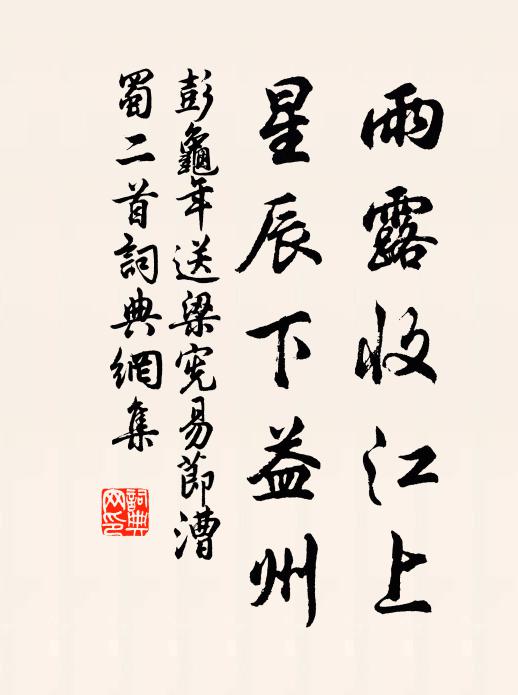 雨露收江上
星辰下益州
彭龜年送梁寃易節漕
蜀二首詞典網集
詞典网印